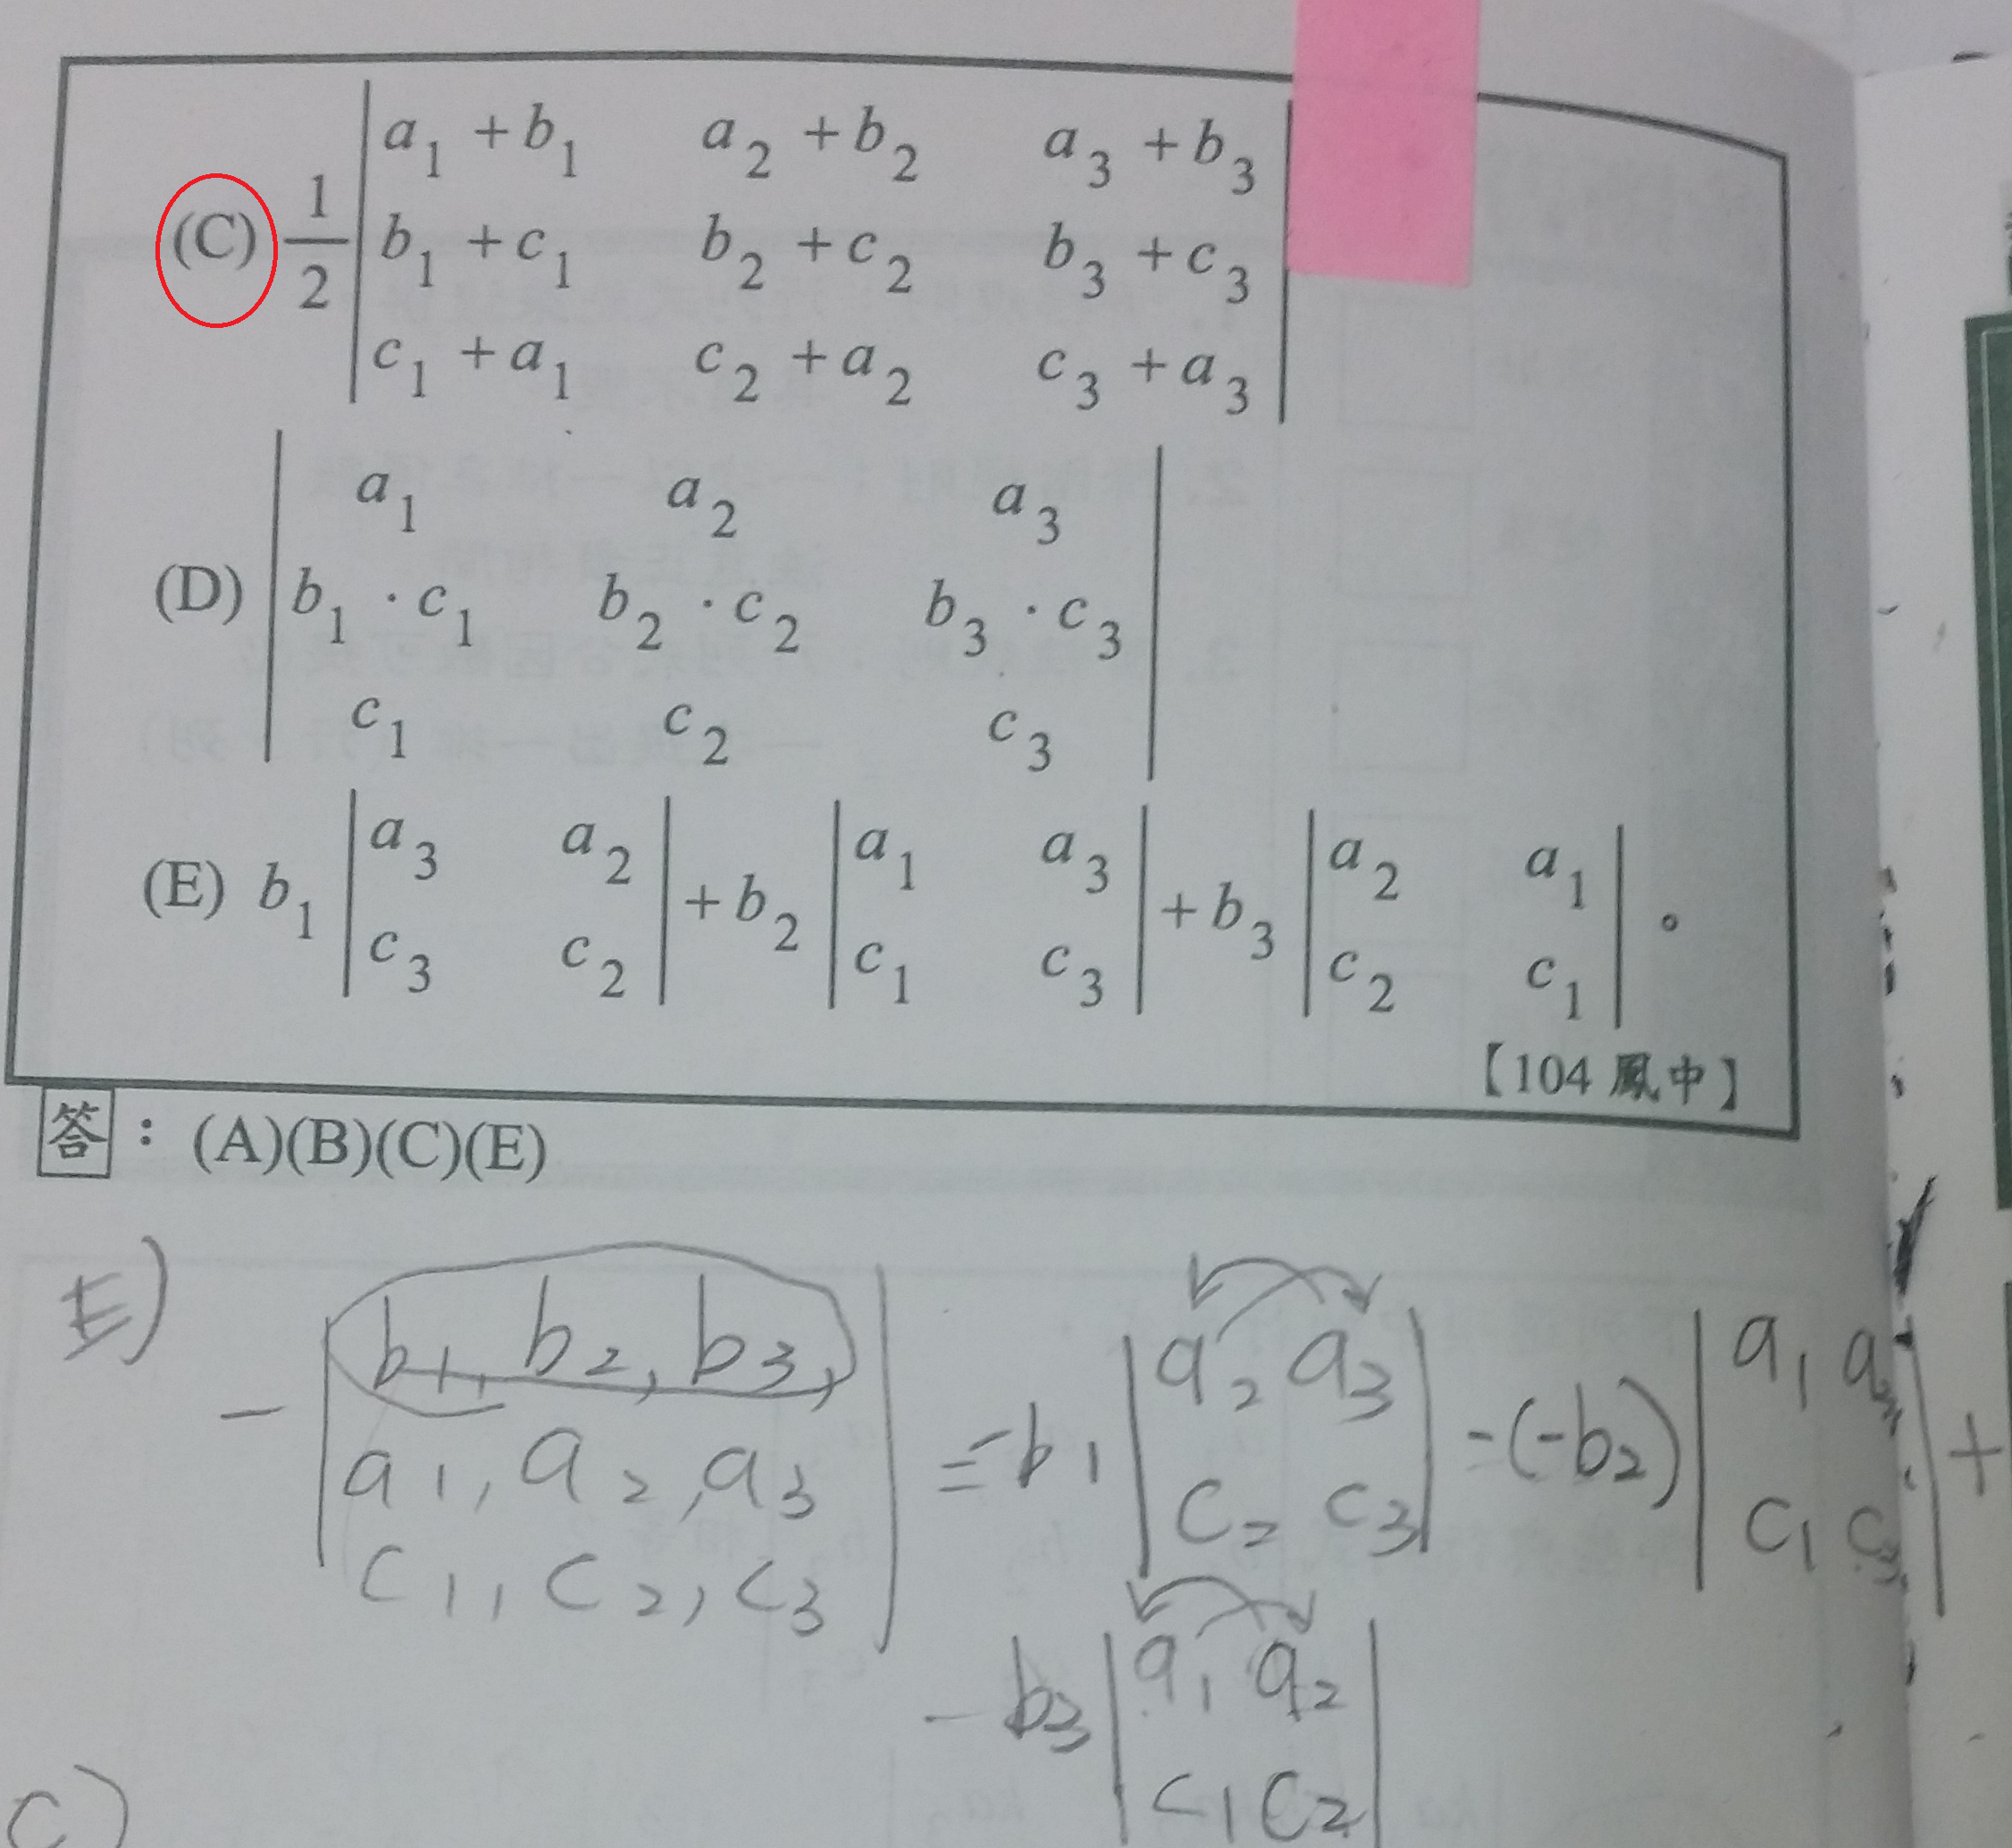 (C) 1/2 | a₁ + b₁  a₂ + b₂  a₃ + b₃ |
| b₁ + c₁  b₂ + c₂  b₃ + c₃ |
| c₁ + a₁  c₂ + a₂  c₃ + a₃ |
(D) | a₁  a₂  a₃ |
| b₁ · c₁  b₂ · c₂  b₃ · c₃ |
| c₁  c₂  c₃ |
(E) b₁ | a₃  a₂ | + b₂ | a₁  a₃ | + b₃ | a₂  a₁ | 。
| c₃  c₂ | | c₁  c₃ | | c₂  c₁ |
【104 鳳中】
答 : (A)(B)(C)(E)
E)
- | b₁, b₂, b₃, | = -b₁ | a₂ a₃ | - (-b₂) | a₁ | +
| a₁, a₂, a₃ | | c₂ c₃ | | c₁ |
| c₁, c₂, c₃ |
- b₃ | a₁ a₂ |
| c₁ c₂ |
C)